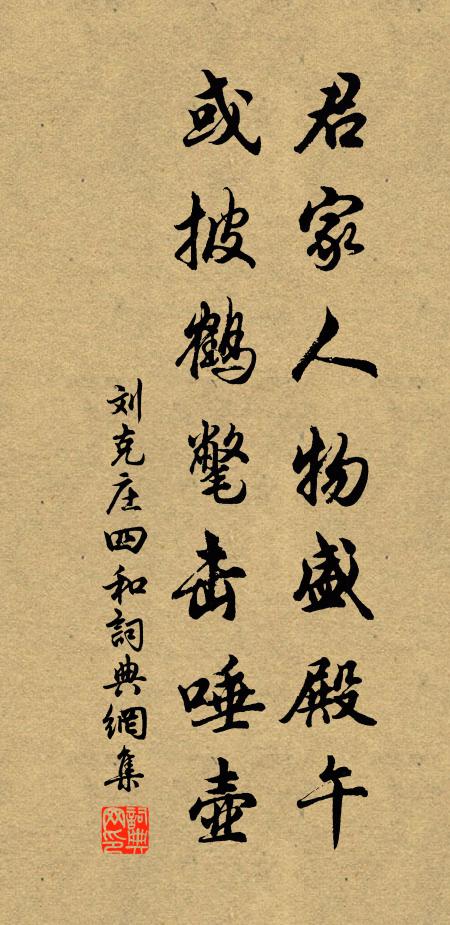 君家人物盛殿午
或披鹤氅击唾壶
刘克庄四和詞典網集
詞典网印